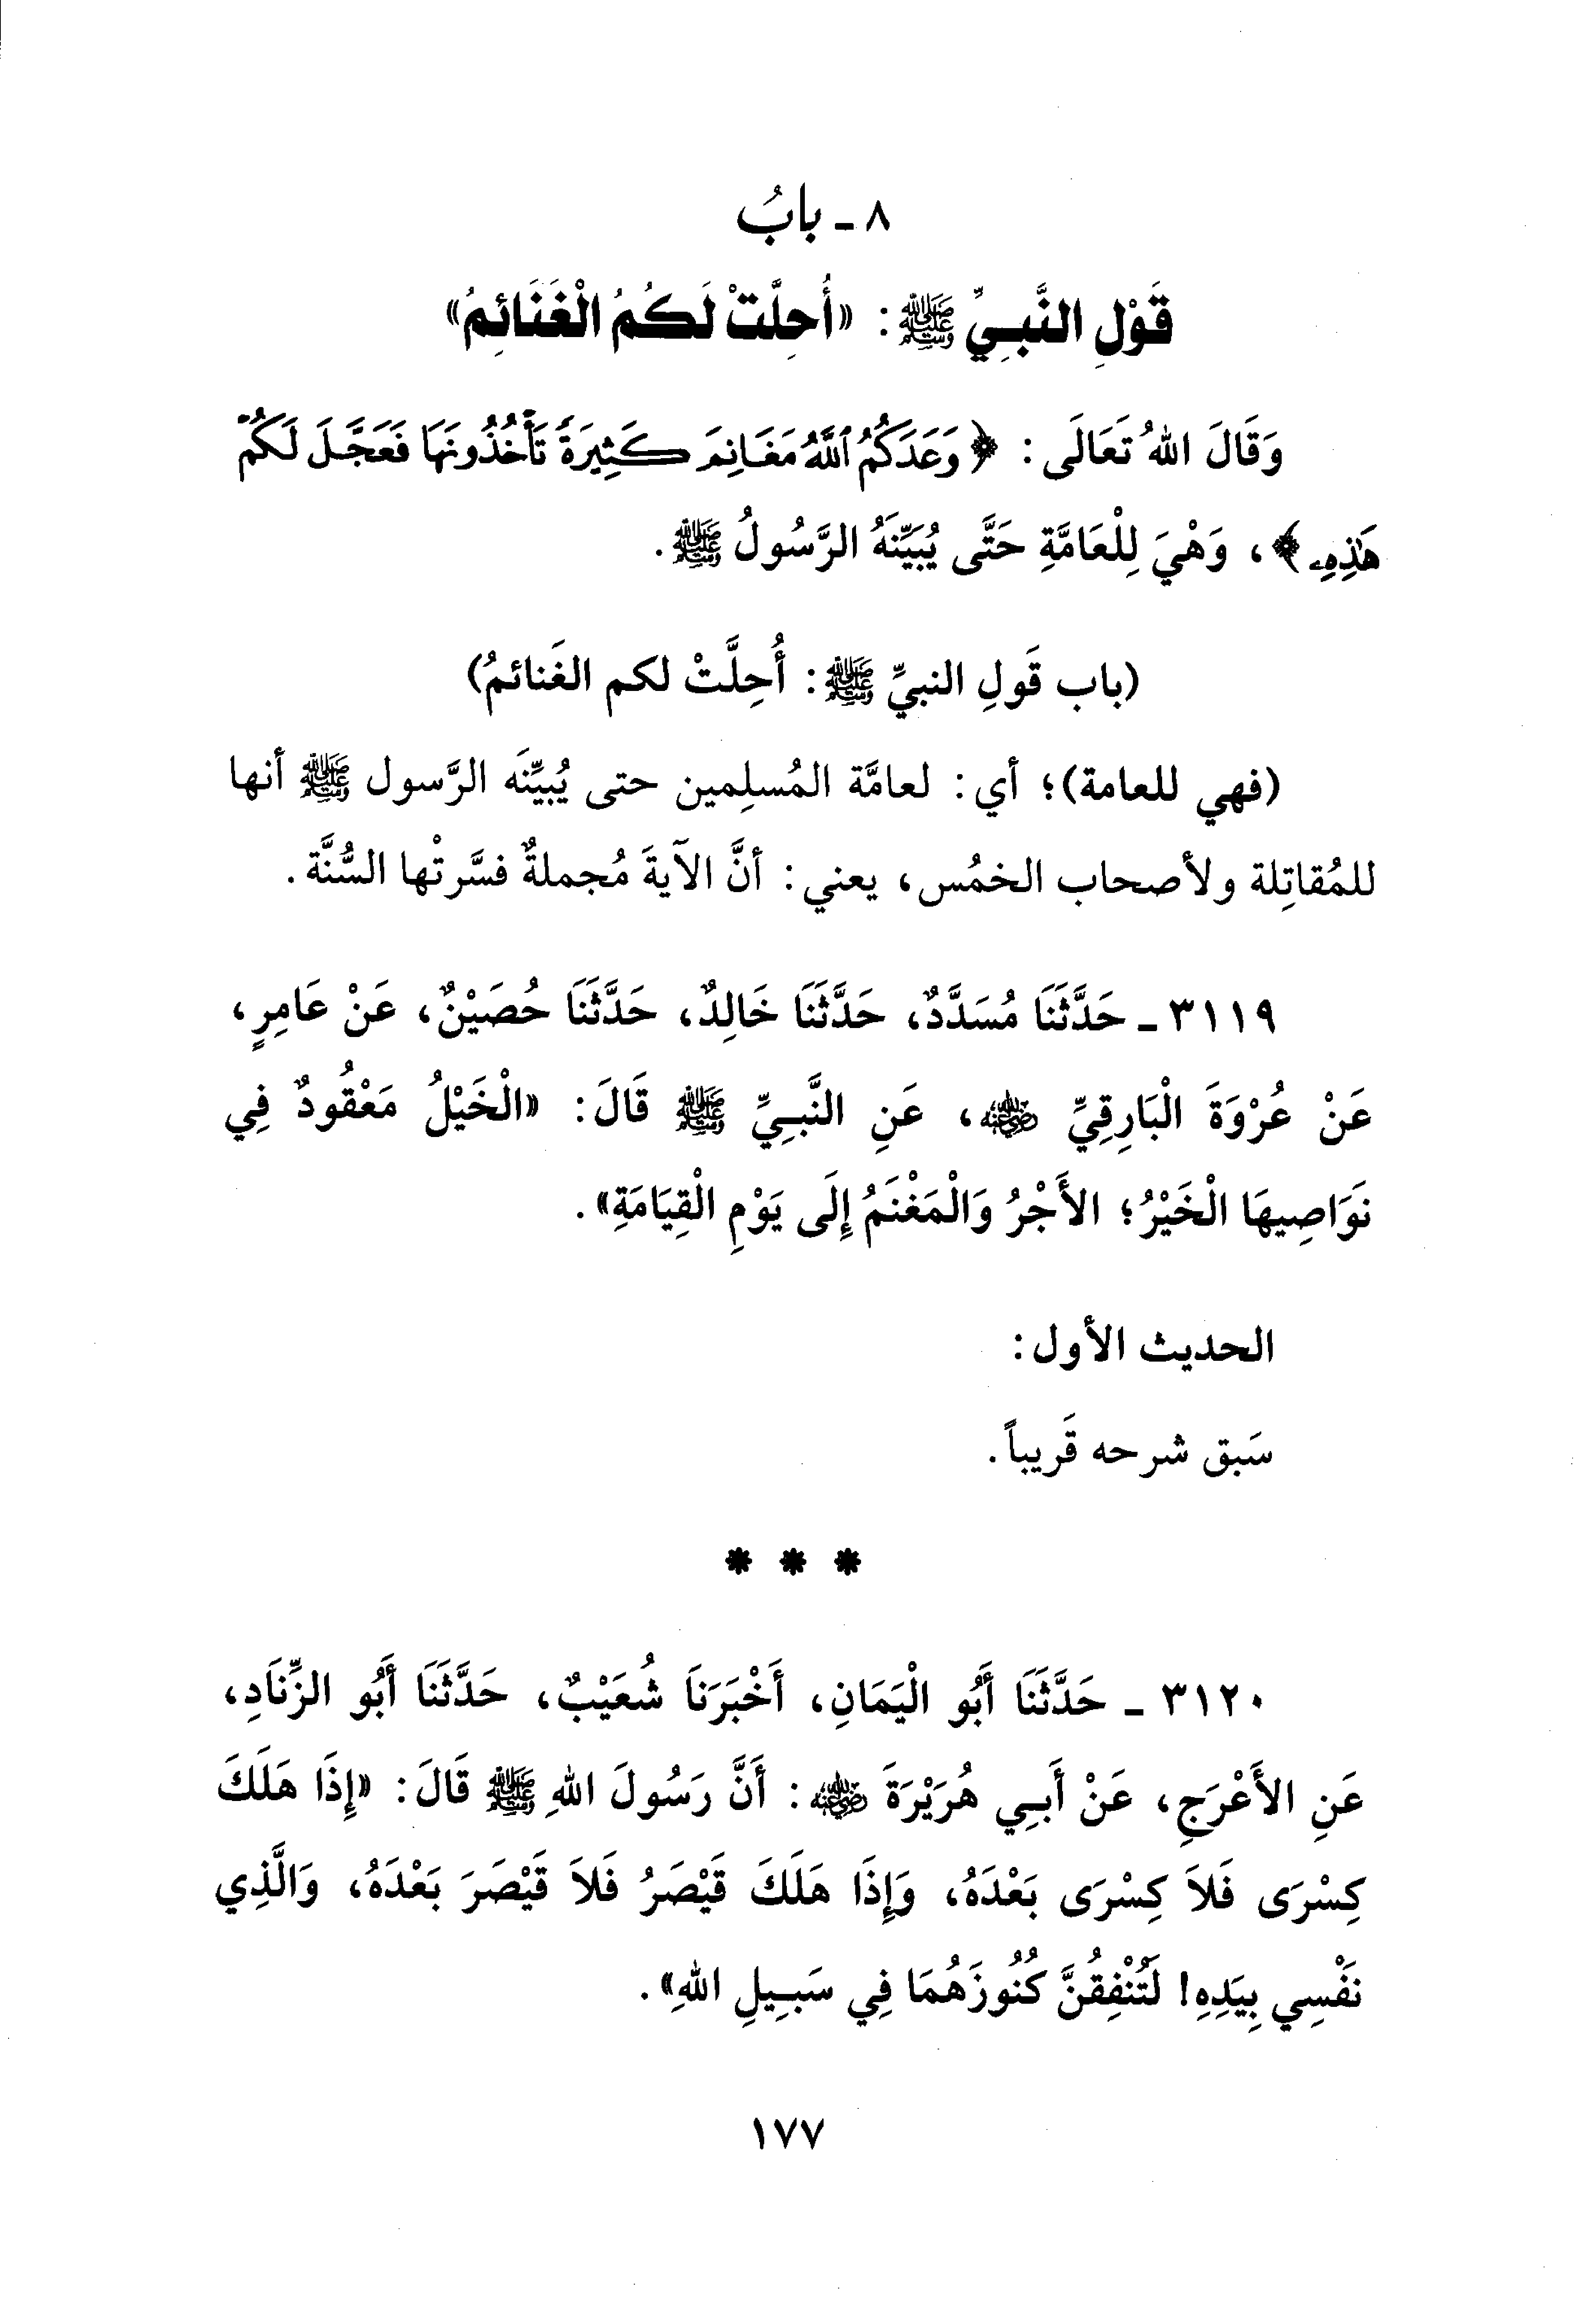 ٨ - بابُ
قَوْلِ النَّبِيِّ ﷺ: «أُحِلَّتْ لَكُمُ الْغَنَائِمُ»
وَقَالَ اللهُ تَعَالَى: ﴿وَعَدَكُمُ ٱللَّهُ مَغَانِمَ كَثِيرَةً تَأْخُذُونَهَا فَعَجَّلَ لَكُمْ
هَٰذِهِۦ﴾، وَهْيَ لِلْعَامَّةِ حَتَّى يُبَيِّنَهُ الرَّسُولُ ﷺ.
(باب قَولِ النبيِّ ﷺ: أُحِلَّتْ لكم الغَنائمُ)
(فهي للعامة)؛ أي: لعامَّة المُسلِمين حتى يُبيِّنَه الرَّسول ﷺ أنها
للمُقاتِلة ولأصحاب الخمُس، يعني: أنَّ الآيةَ مُجملةٌ فسَّرتْها السُّنَّة.
٣١١٩ - حَدَّثَنَا مُسَدَّدٌ، حَدَّثَنَا خَالِدٌ، حَدَّثَنَا حُصَيْنٌ، عَنْ عَامِرٍ،
عَنْ عُرْوَةَ الْبَارِقِيِّ رضي الله عنه، عَنِ النَّبِيِّ ﷺ قَالَ: «الْخَيْلُ مَعْقُودٌ فِي
نَوَاصِيهَا الْخَيْرُ؛ الأَجْرُ وَالْمَغْنَمُ إِلَى يَوْمِ الْقِيَامَةِ».
الحديث الأول:
سَبق شرحه قَريباً.
* * *
٣١٢٠ - حَدَّثَنَا أَبُو الْيَمَانِ، أَخْبَرَنَا شُعَيْبٌ، حَدَّثَنَا أَبُو الزِّنَادِ،
عَنِ الأَعْرَجِ، عَنْ أَبِي هُرَيْرَةَ رضي الله عنه: أَنَّ رَسُولَ اللهِ ﷺ قَالَ: «إِذَا هَلَكَ
كِسْرَى فَلاَ كِسْرَى بَعْدَهُ، وَإِذَا هَلَكَ قَيْصَرُ فَلاَ قَيْصَرَ بَعْدَهُ، وَالَّذِي
نَفْسِي بِيَدِهِ! لَتُنْفِقُنَّ كُنُوزَهُمَا فِي سَبِيلِ اللهِ».
١٧٧